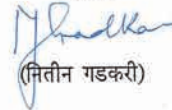 (नितीन गडकरी)